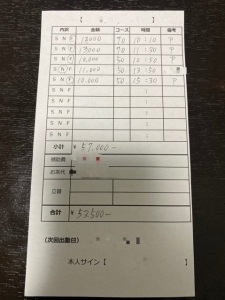 【 】
内訳 金額 コース 時間 備考
S N F 12000 70 10:10 P
S N F 13000 70 11:30 P
S N F 50 12:50 P
S N F 11,000 50 13:50
S N F 10,000 50 15:30 P
S N F :
S N F :
S N F :
S N F :
S N F :
小計 ¥57,000-
補助費
お茶代
立替
合計 ¥52500-
(次回出勤日)
本人サイン【